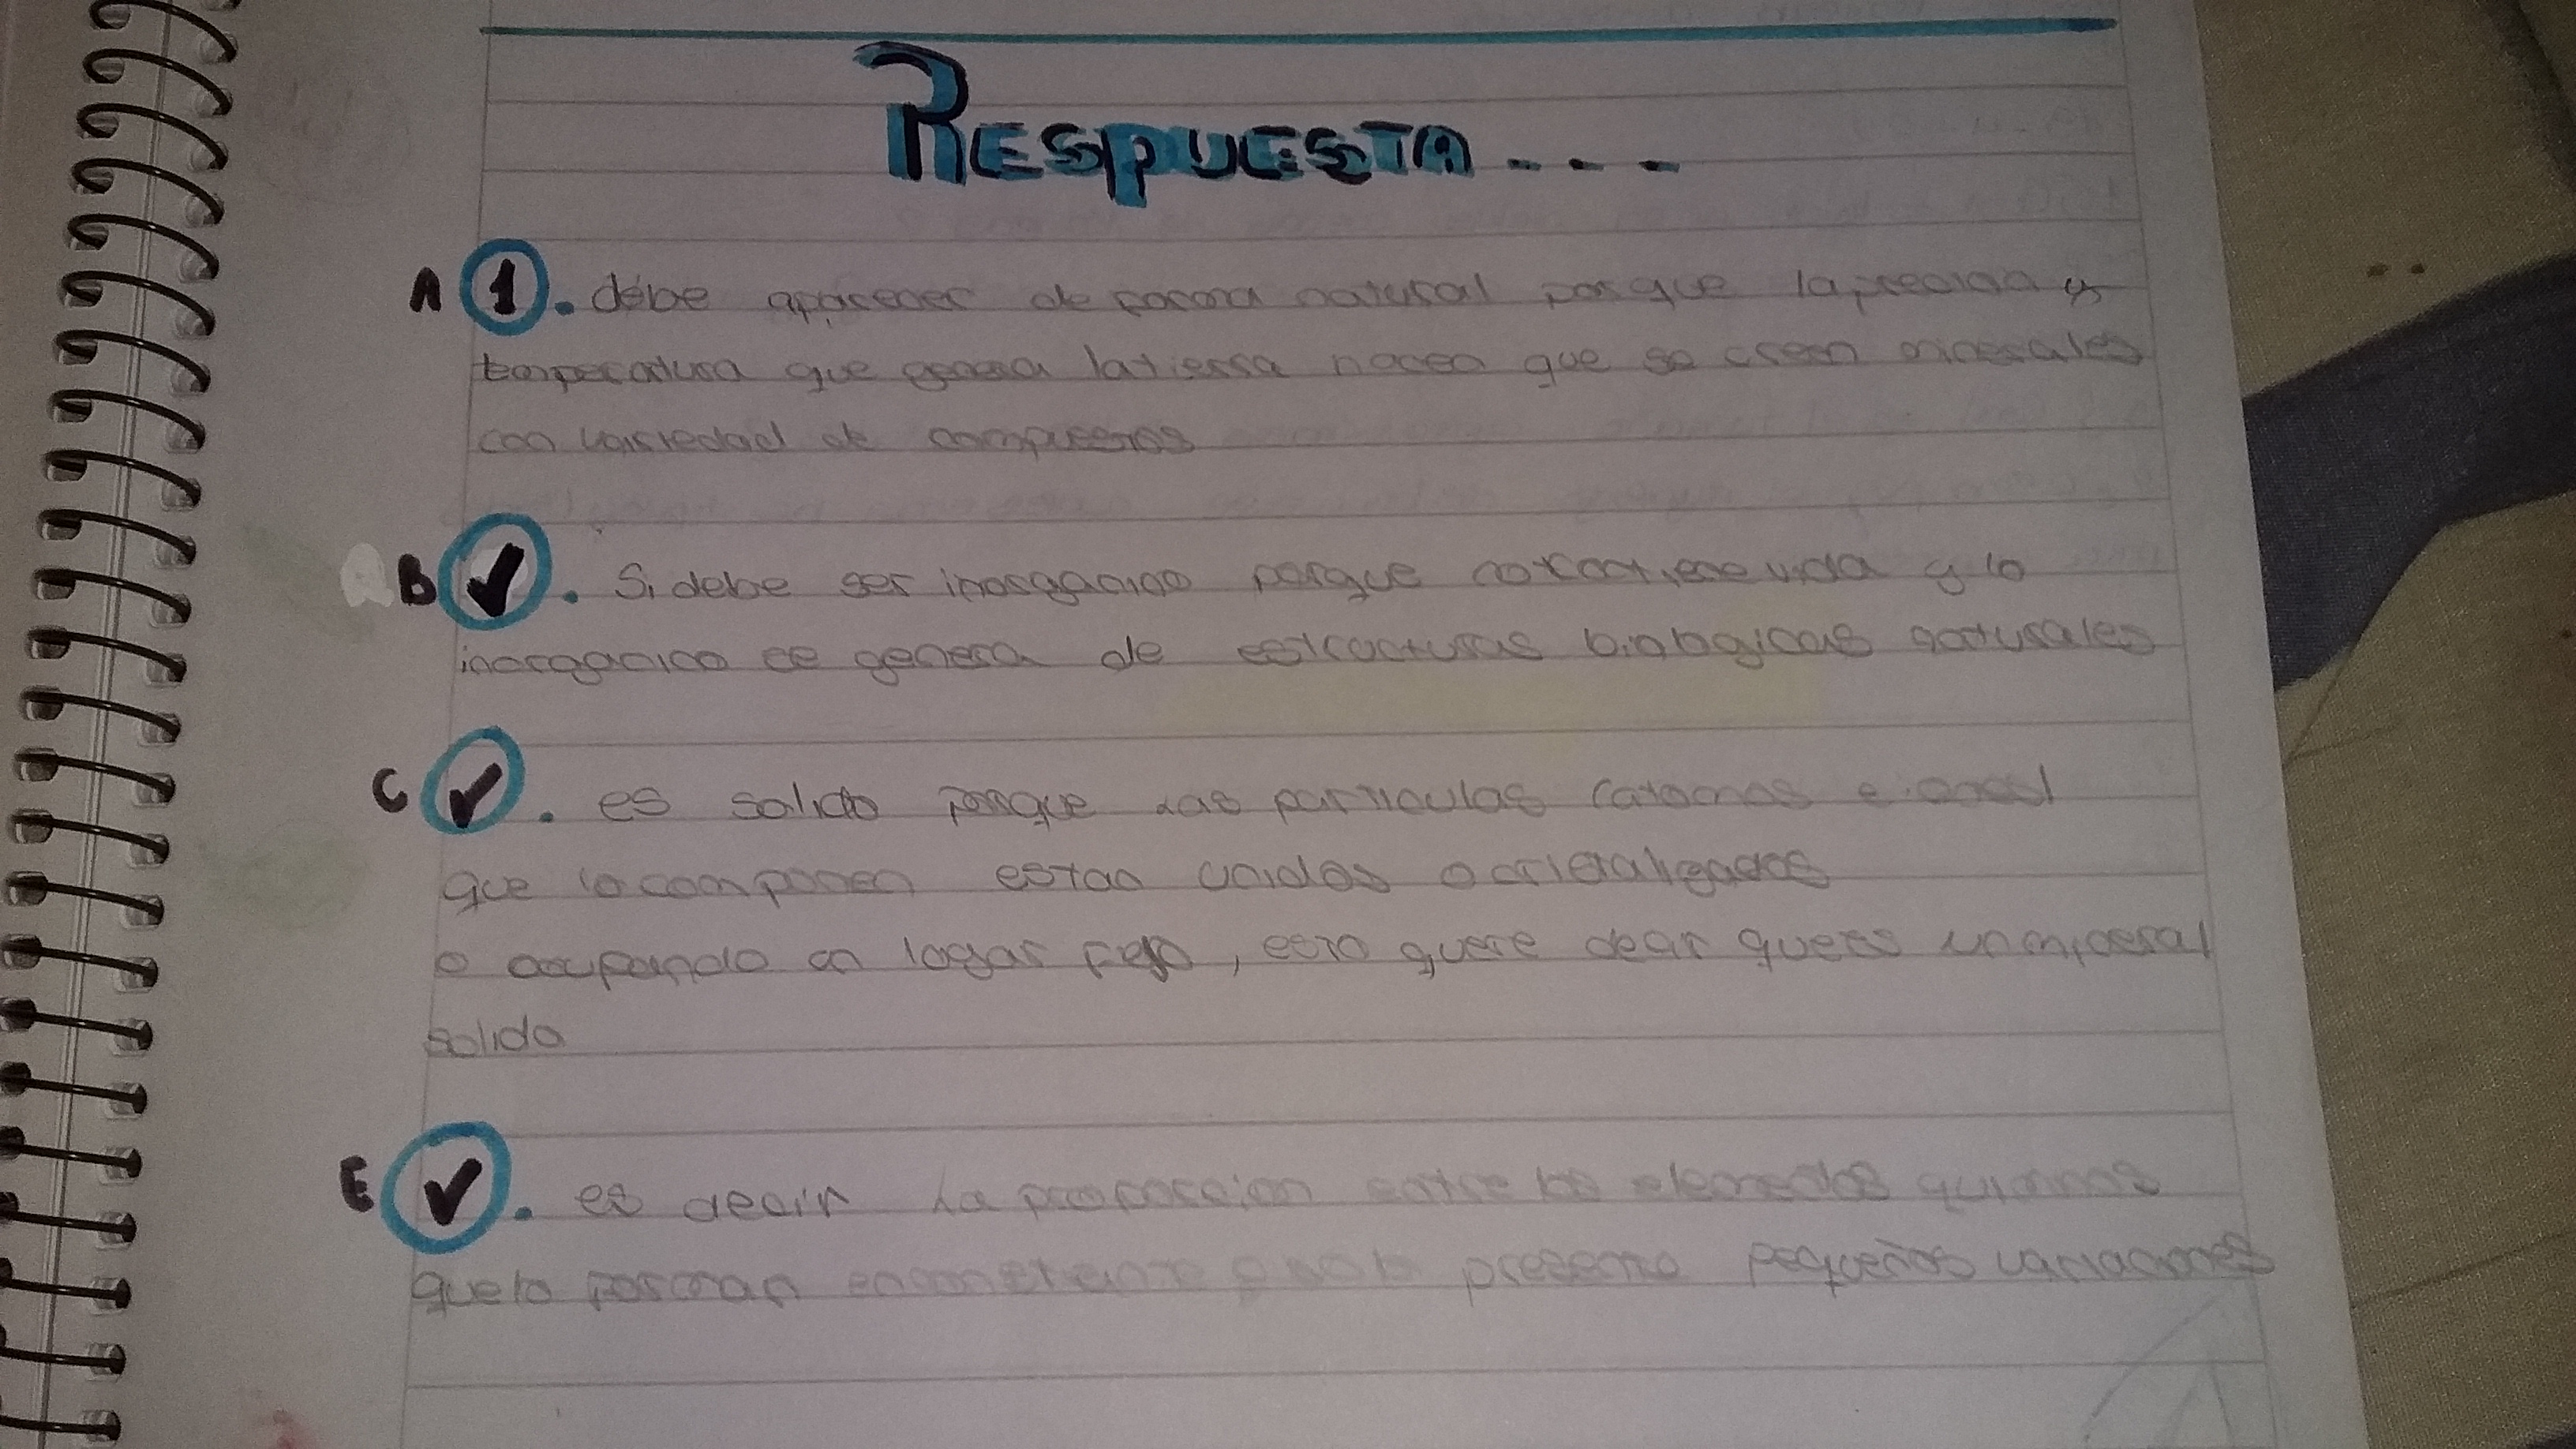 RESPUESTA...
A 1. debe aparecer de forma natural porque la presion y
temperatura que genera la tierra hacen que se creen minerales
con variedad de compuestos
B ✓. Si debe ser inorganico porque no contiene vida y lo
inorganico se genera de estructuras biologicas naturales
C ✓. es solido porque Las particulas (atomos e iones)
que lo componen estan unidos o cristalizados
o ocupando un lugar fijo, esto quere decir que es un mineral
solido
E ✓. es decir La proporcion entre los elementos quimicos
que lo forman presenta pequeños variaciones